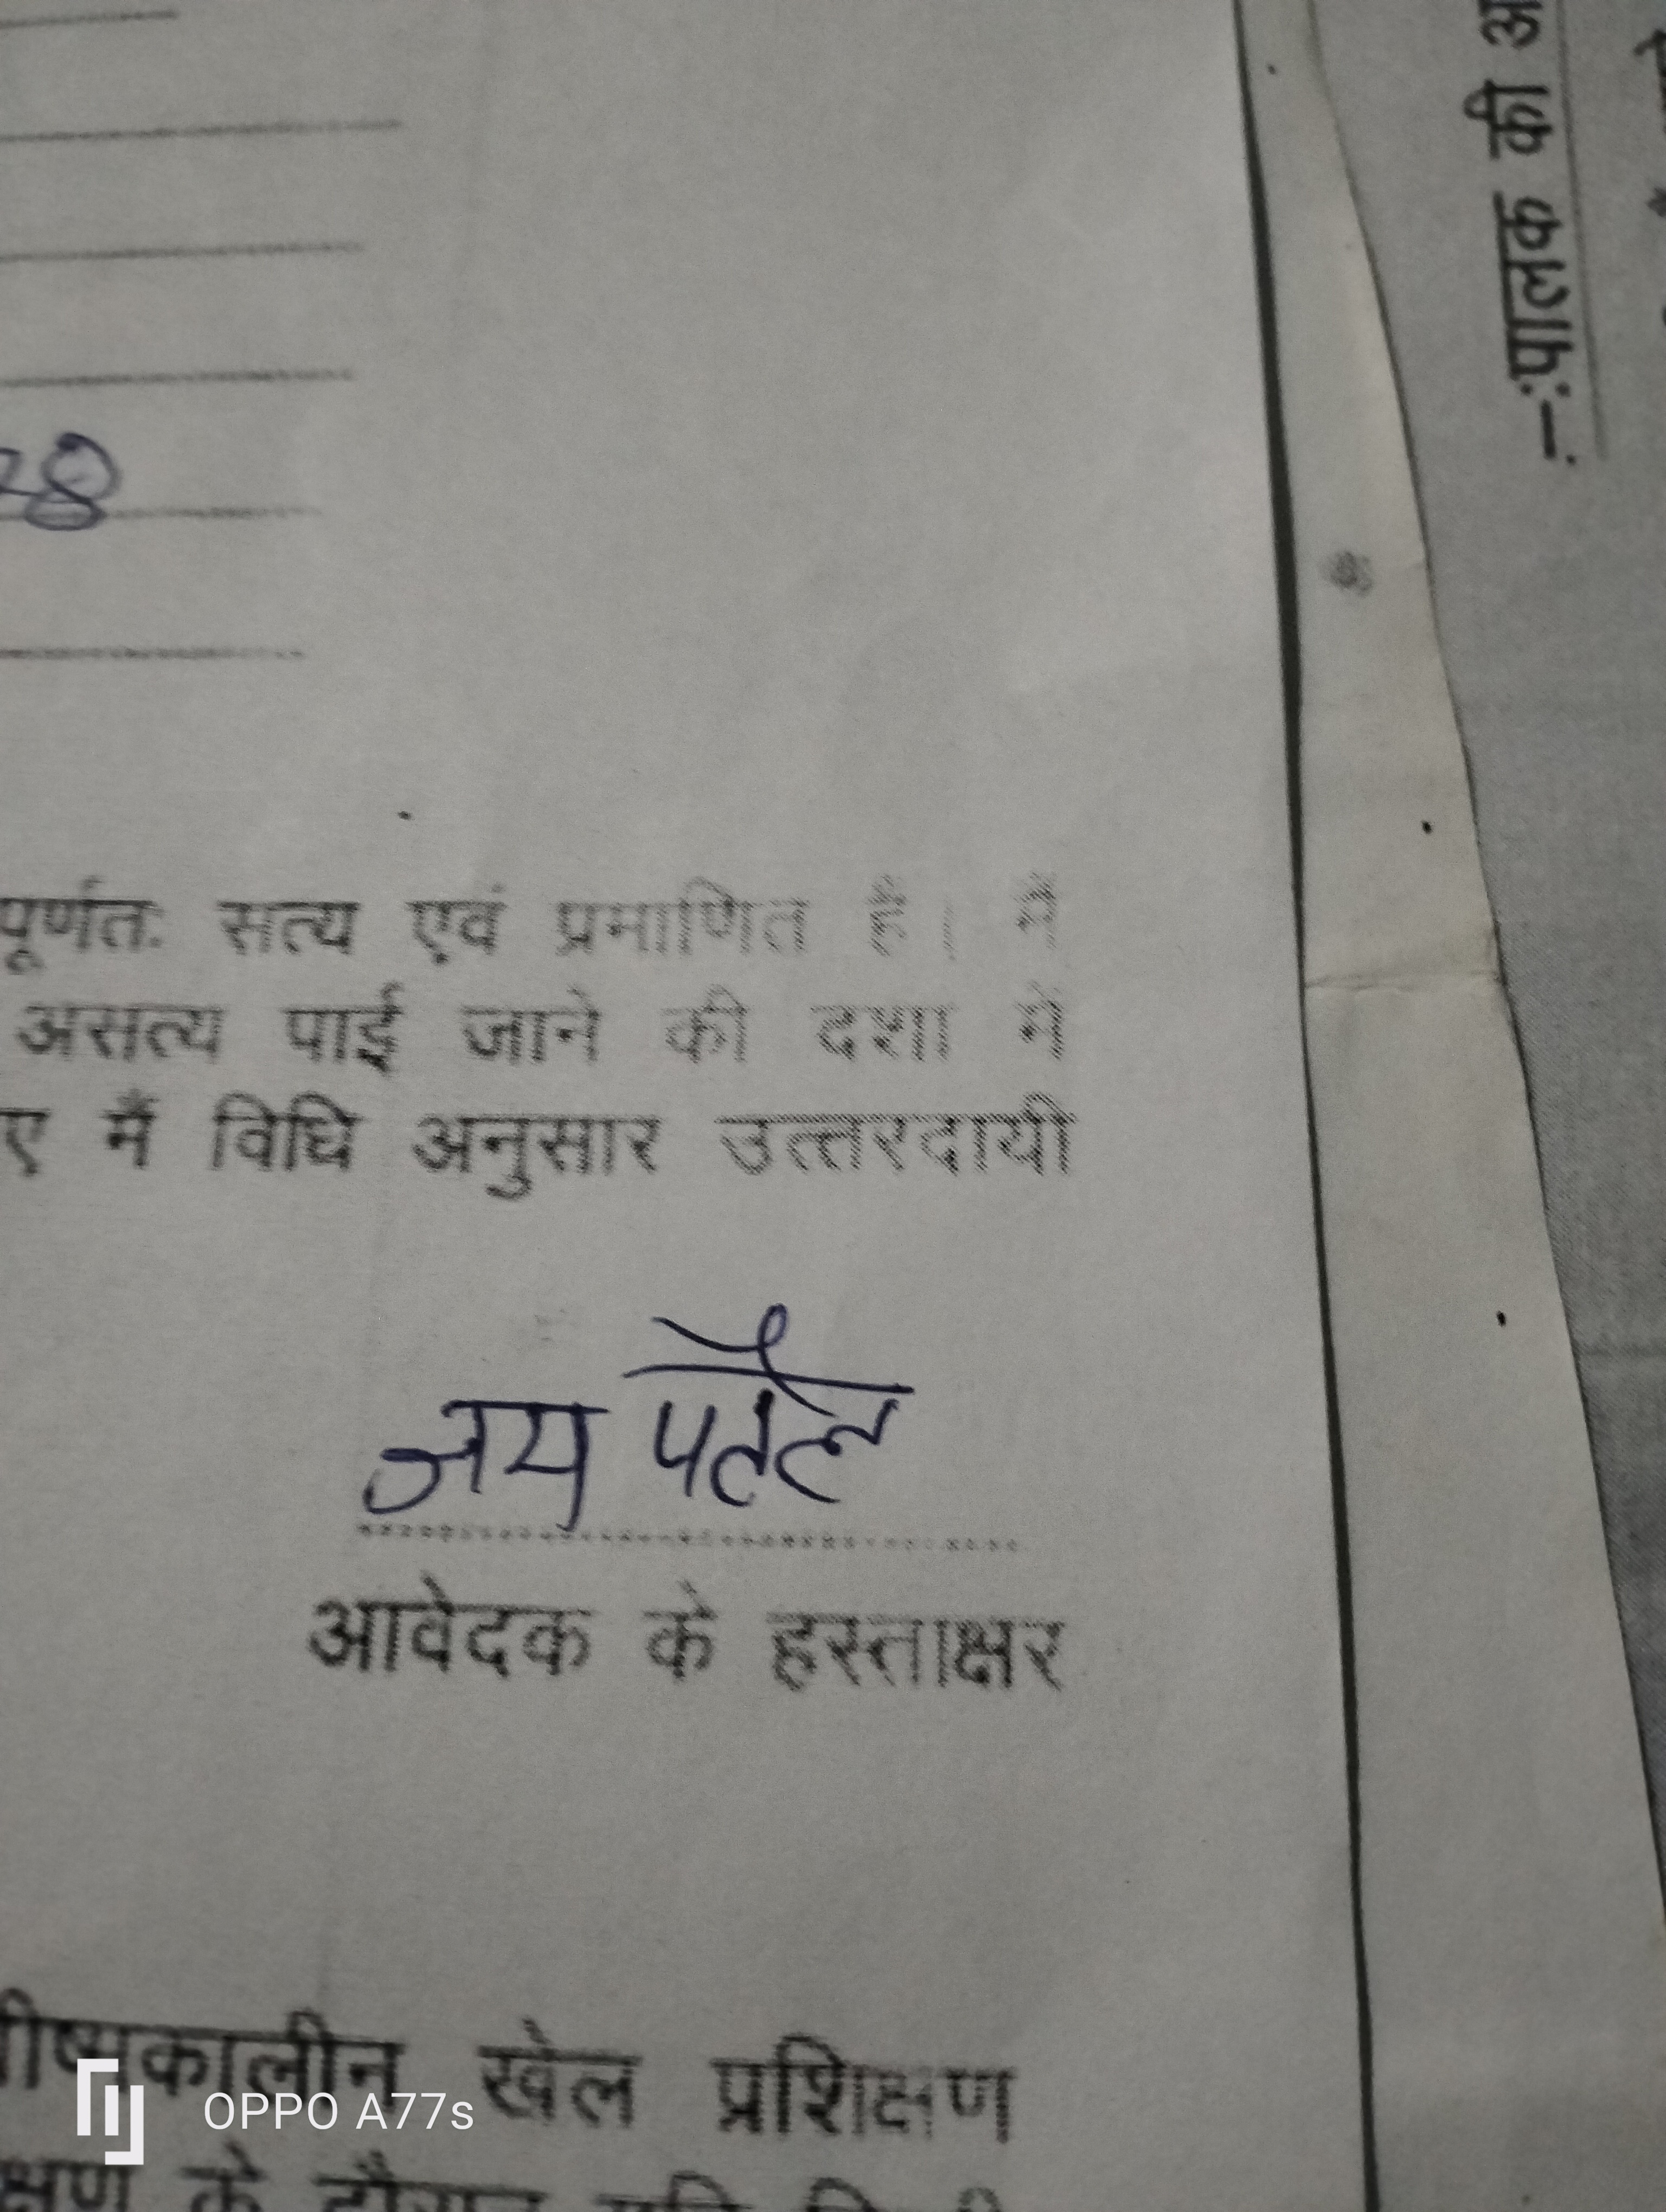 28
पूर्णतः सत्य एवं प्रमाणित है। मैं
असत्य पाई जाने की दशा में
ए मैं विधि अनुसार उत्तरदायी
जय पटेल
आवेदक के हस्ताक्षर
ग्रीष्मकालीन खेल प्रशिक्षण
क्षण के दौरान यदि किसी
पालक की अ
OPPO A77s